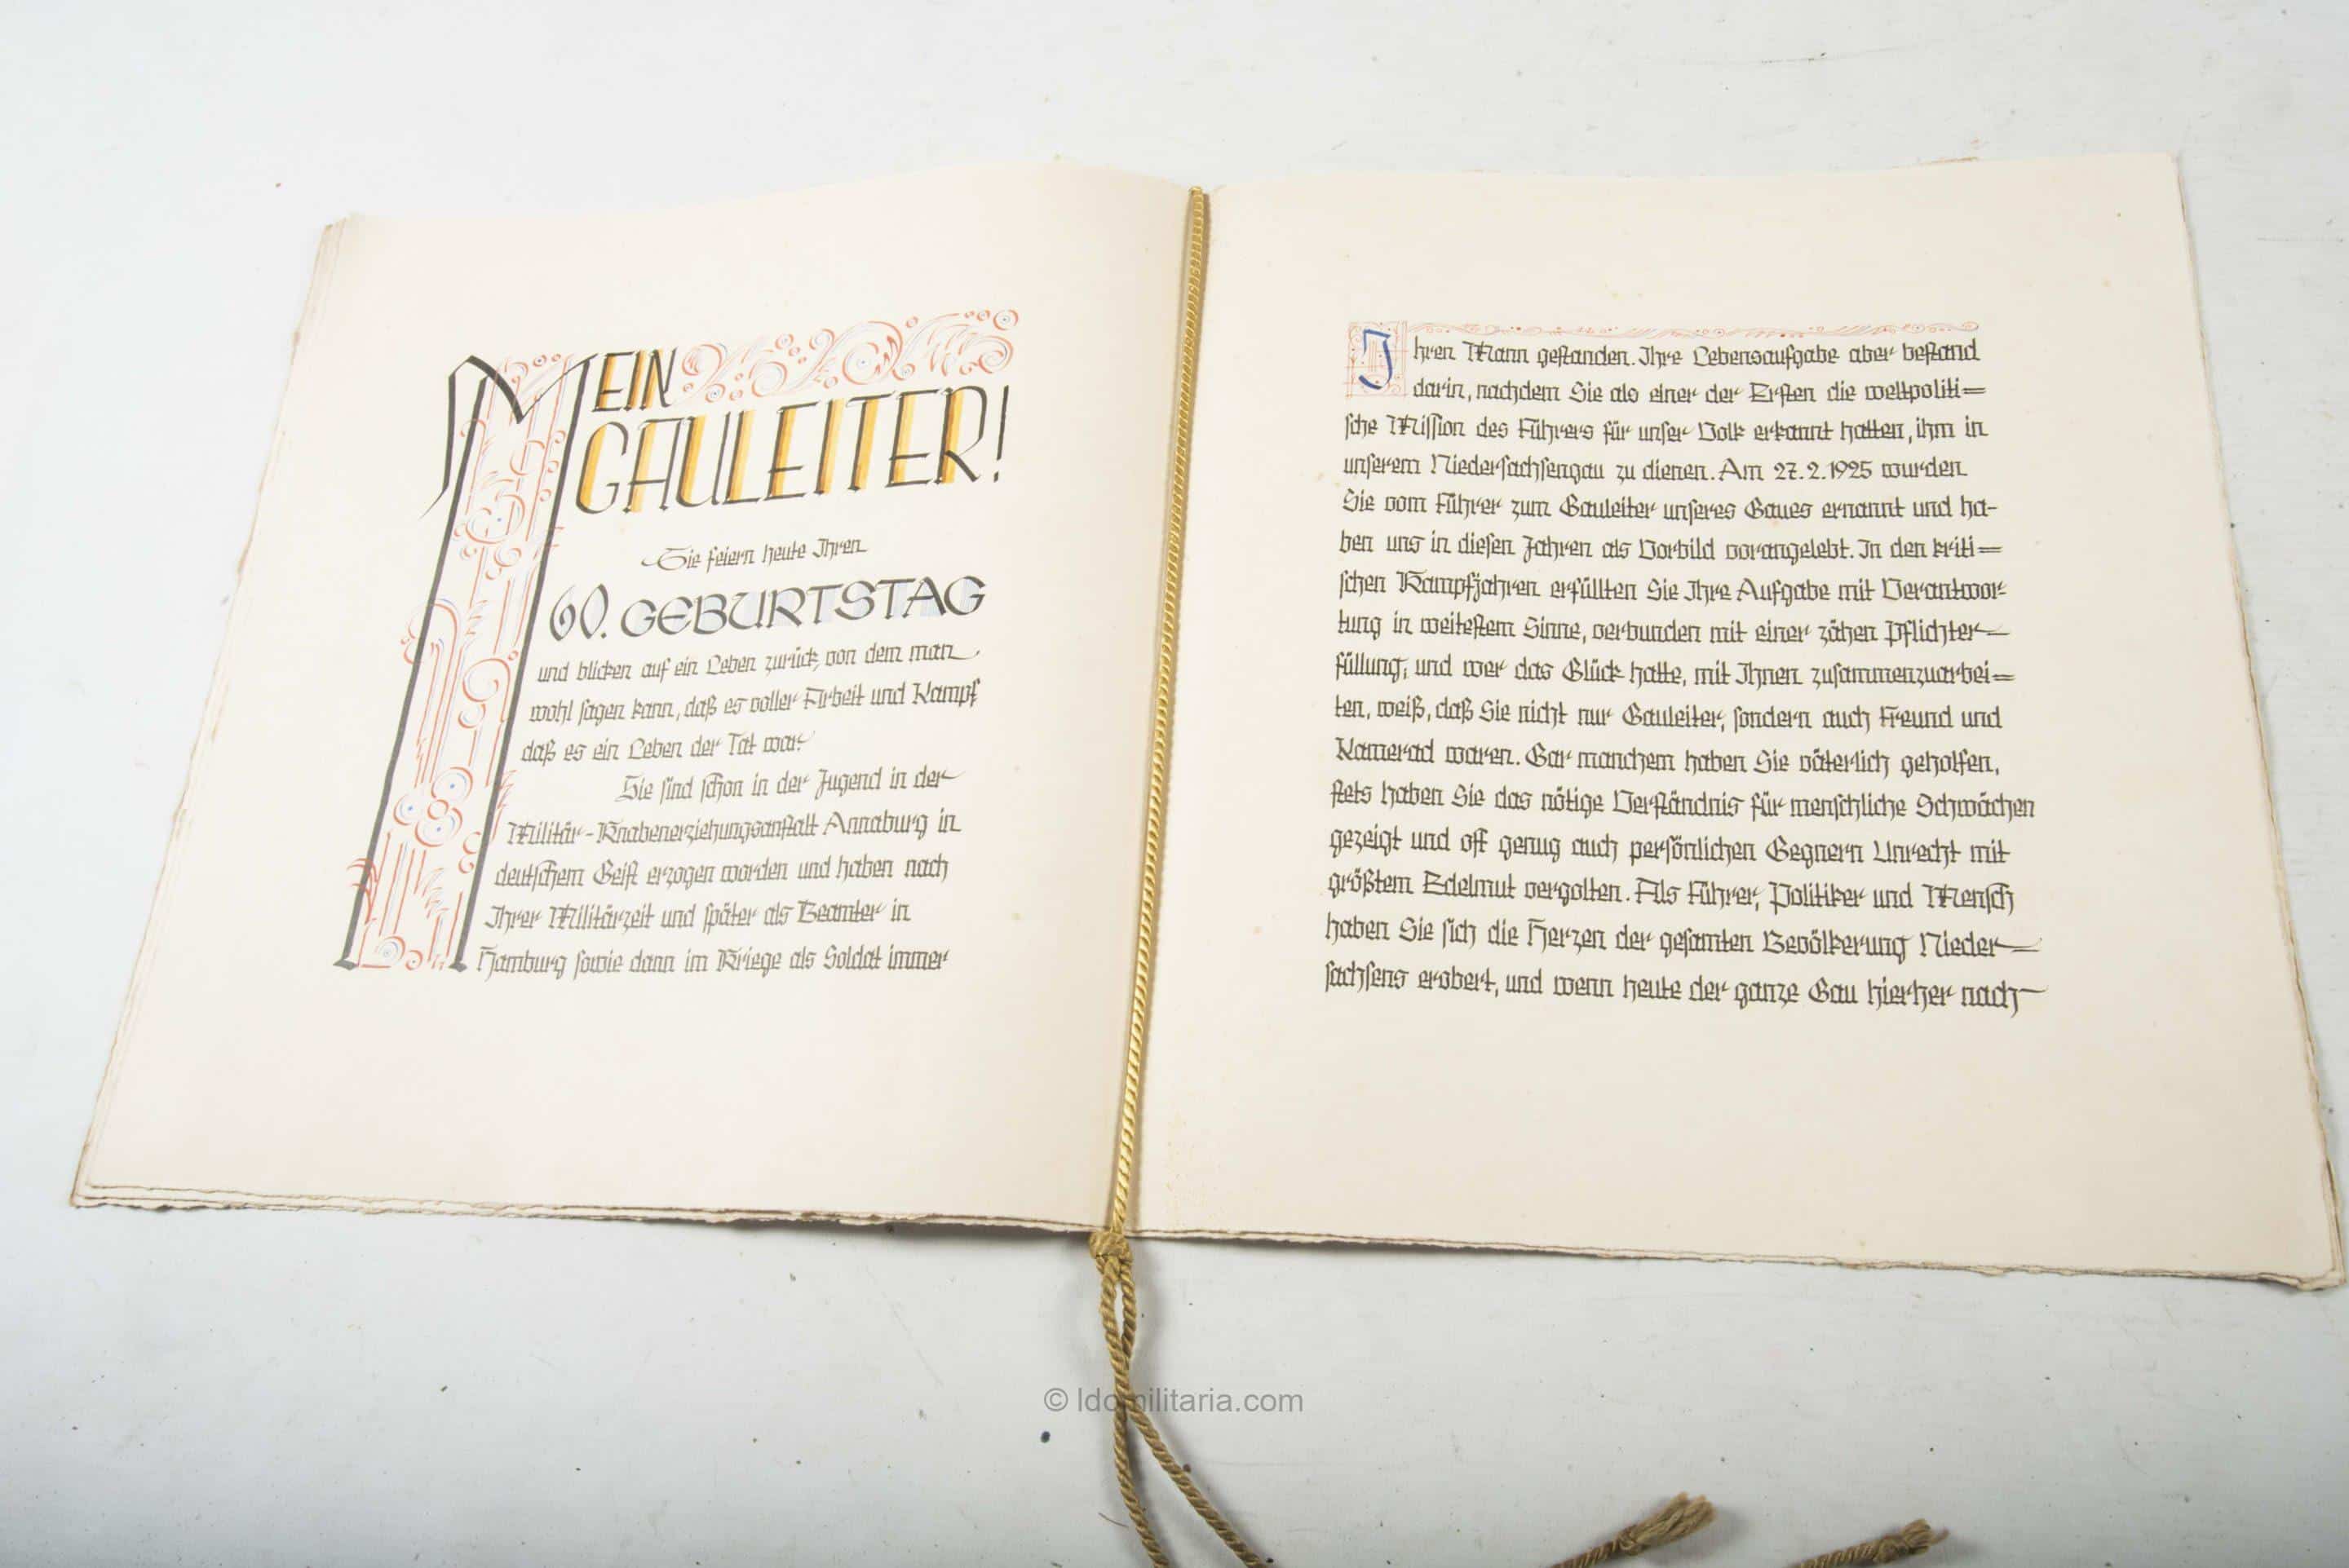 MEIN
GAULEITER!
Sie feiern heute Ihren
60. GEBURTSTAG
und blicken auf ein Leben zurück, von dem man
wohl sagen kann, daß es voller Arbeit und Kampf
daß es ein Leben der Tat war.
Sie sind schon in der Jugend in der
Militär-Knabenerziehungsanstalt Annaburg in
deutschem Geist erzogen worden und haben nach
Ihrer Militärzeit und später als Beamter in
Hamburg sowie dann im Kriege als Soldat immer
Ihren Mann gestanden. Ihre Lebensaufgabe aber bestand
darin, nachdem Sie als einer der Ersten die weltpoliti=
sche Mission des Führers für unser Volk erkannt hatten, ihm in
unserem Niedersachsengau zu dienen. Am 27.2.1925 wurden
Sie vom Führer zum Gauleiter unseres Gaues ernannt und ha-
ben uns in diesen Jahren als Vorbild vorangelebt. In den kriti=
schen Kampfjahren erfüllten Sie Ihre Aufgabe mit Verantwor=
tung in weitestem Sinne, verbunden mit einer zähen Pflichter-
füllung, und wer das Glück hatte, mit Ihnen zusammenzuarbei=
ten, weiß, daß Sie nicht nur Gauleiter, sondern auch Freund und
Kamerad waren. Gar manchem haben Sie väterlich geholfen,
stets haben Sie das nötige Verständnis für menschliche Schwächen
gezeigt und oft genug auch persönlichen Gegnern Unrecht mit
größtem Edelmut vergolten. Als Führer, Politiker und Mensch
haben Sie sich die Herzen der gesamten Bevölkerung Nieder=
sachsens erobert, und wenn heute der ganze Gau hierher nach
© ldomilitaria.com